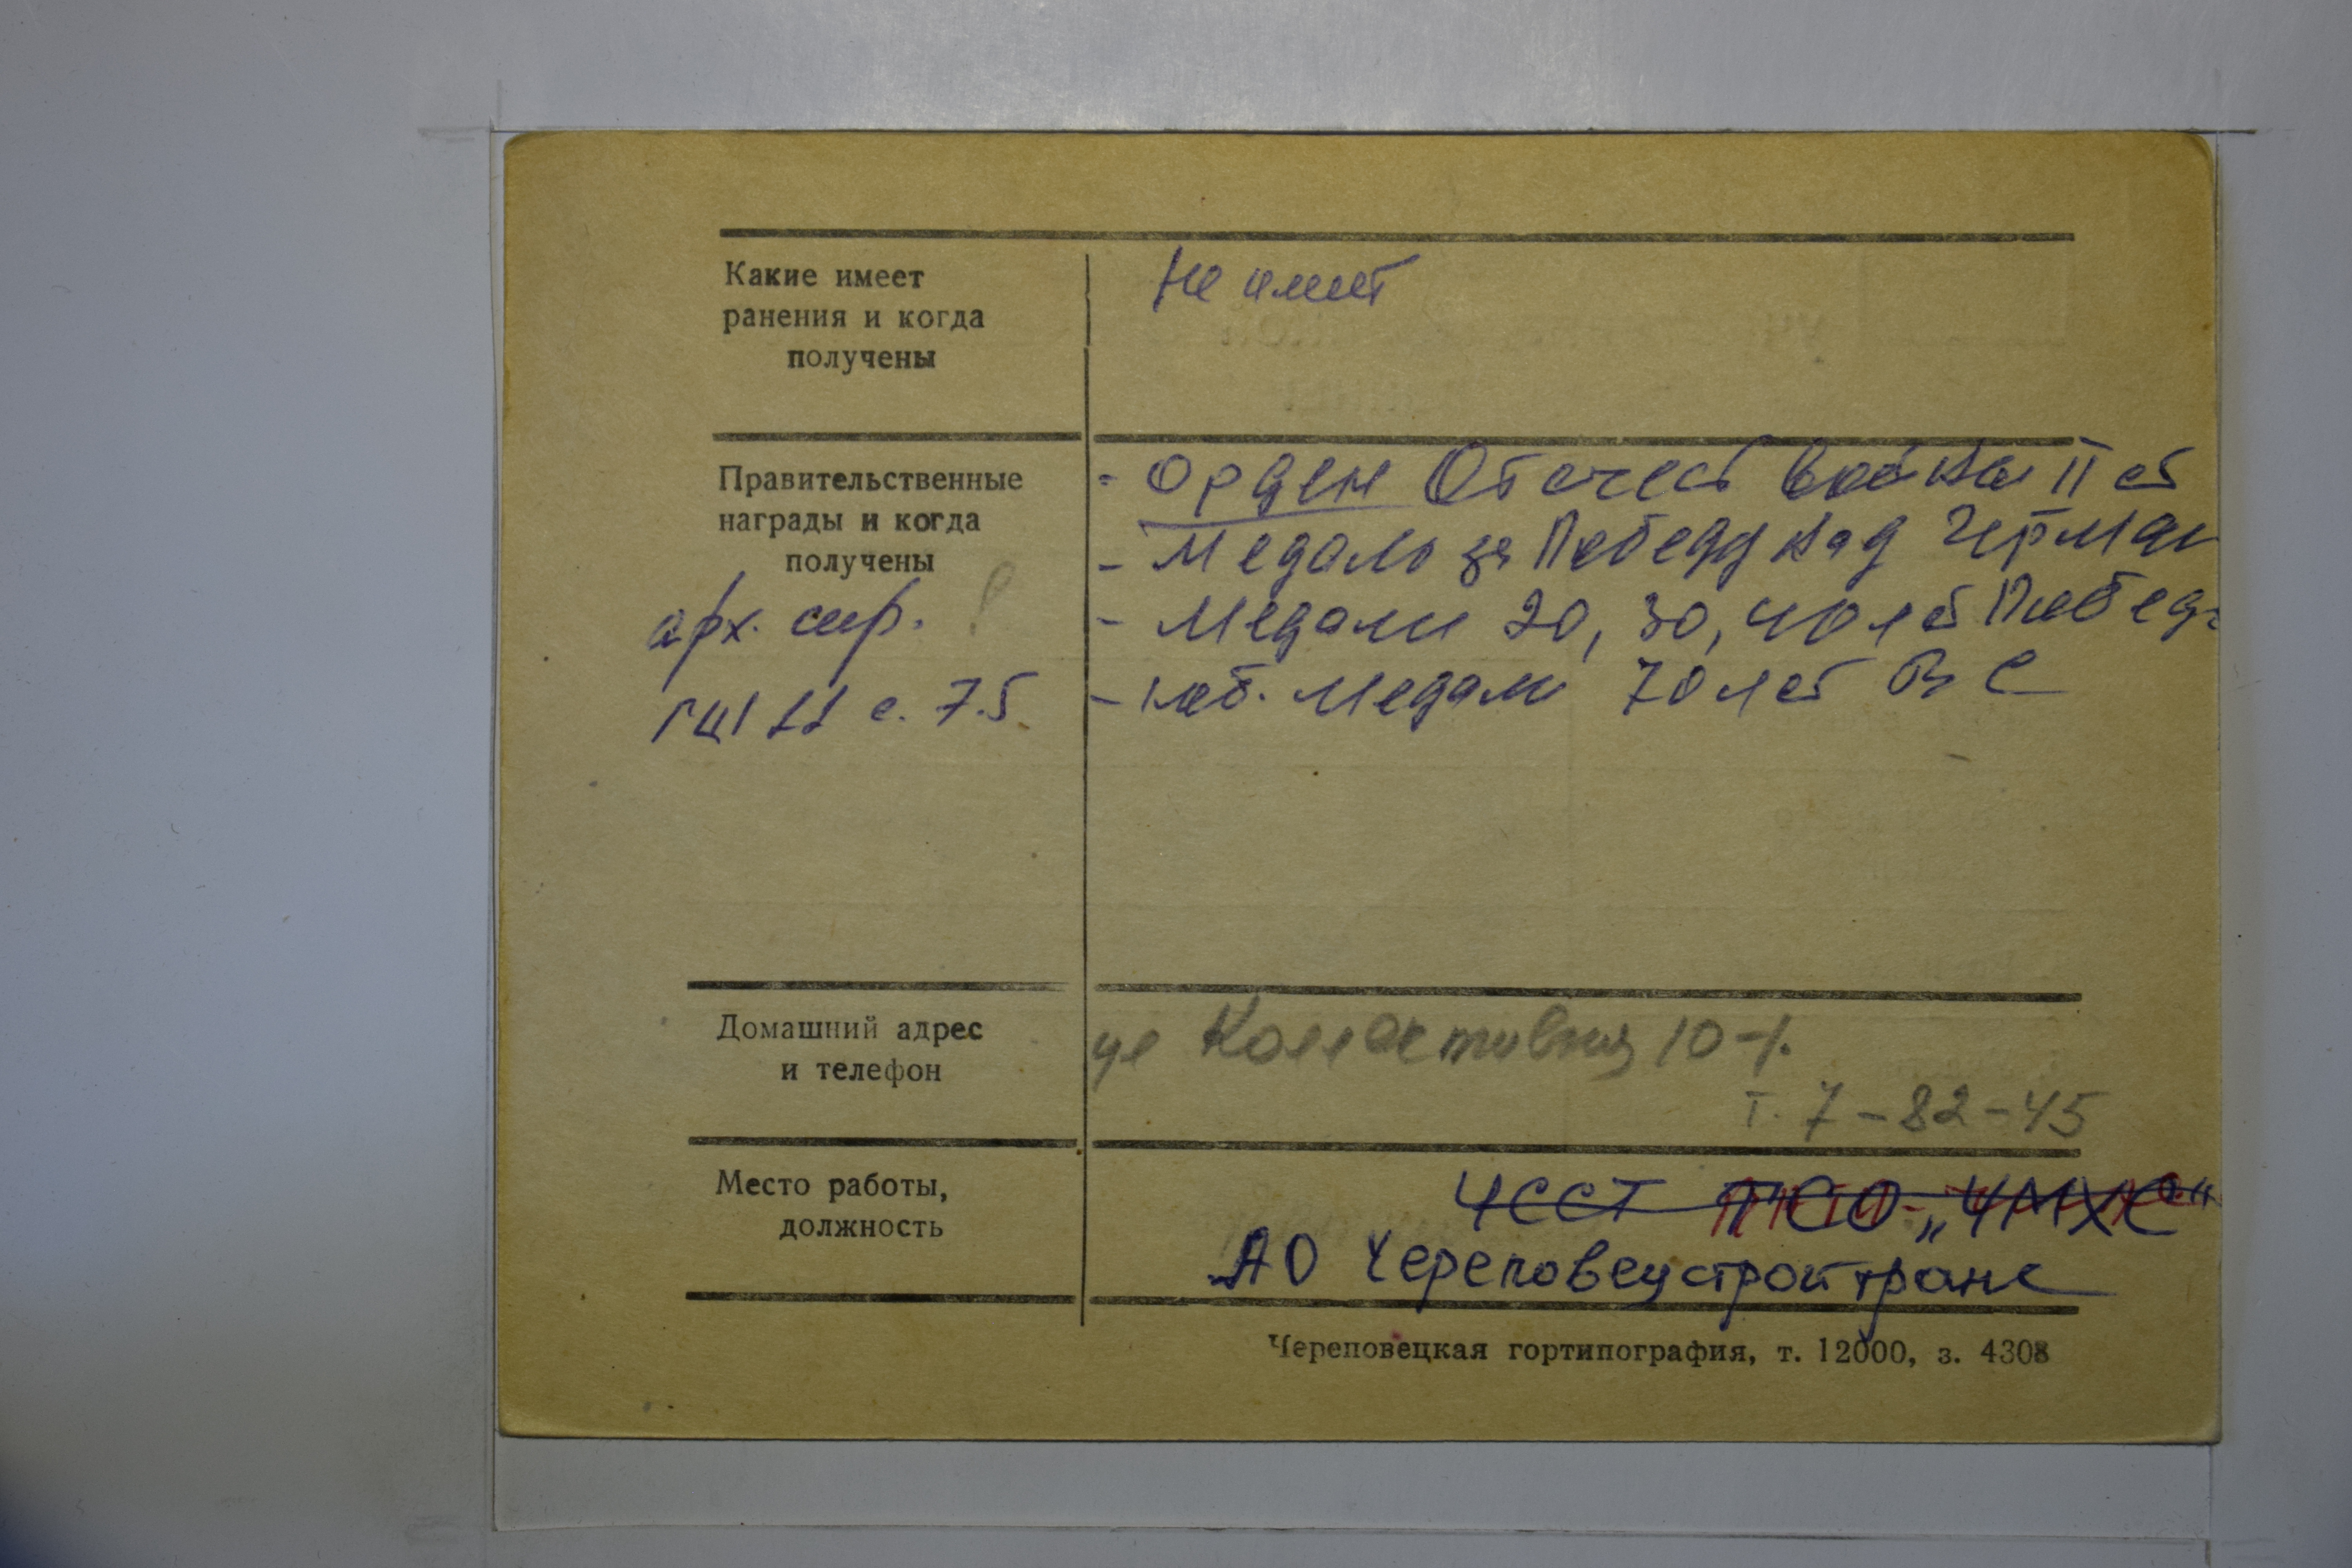 Какие имеет
ранения и когда
получены
Не имеет
Правительственные
награды и когда
получены
арх. спр. !
с. 75
- Орден Отечест войны II ст
- Медаль за Победу над Герман
- Медали 20, 30, 40 лет Побед
- юб. медаль 70 лет ВС
Домашний адрес
и телефон
ул Коллективная 10-1.
т. 7-82-45
Место работы,
должность
ЧССТ ПСО „ЧМХС“
АО Череповецстройтранс
Череповецкая гортипография, т. 12000, з. 4308